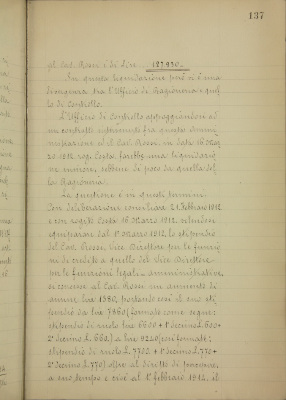 137
al Cav. Rossi è di Lire 127.930.=
In questa liquidazione però vi è una
divergenza tra l'Ufficio di Ragioneria e quel
lo di Controllo.
L'Ufficio di Controllo appoggiandosi ad
un contratto intervenuto fra questa Ammi
nistrazione ed il Cav. Rossi in data 16 Mar
zo 1912 rog. Costa farebbe una liquidazio
ne minore, sebbene di poco da quella del
la Ragioneria.
La questione è in questi termini
Con deliberazione consiliare 21 Febbraio 1912
e con rogito Costa 16 Marzo 1912,
equiparare dal 1º Marzo 1912, lo stipendio
del Cav. Rossi, Vice Direttore per le funzio
ni di credito a quello del Vice Direttore
per le funzioni legali-amministrative,
si concesse al Cav. Rossi un aumento di
annue lire 1380, portando così il suo sti
pendio da lire 7860 (formato come segue:
stipendio di ruolo lire 6600 + 1º decimo L. 600+
2º decimo L. 660) a lire 9240 (così formate:
stipendio di ruolo L. 7702 + 1º decimo L. 770+
2º decimo L. 770) oltre al diritto di percepire,
a suo tempo e cioè al 1º febbraio 1912, il